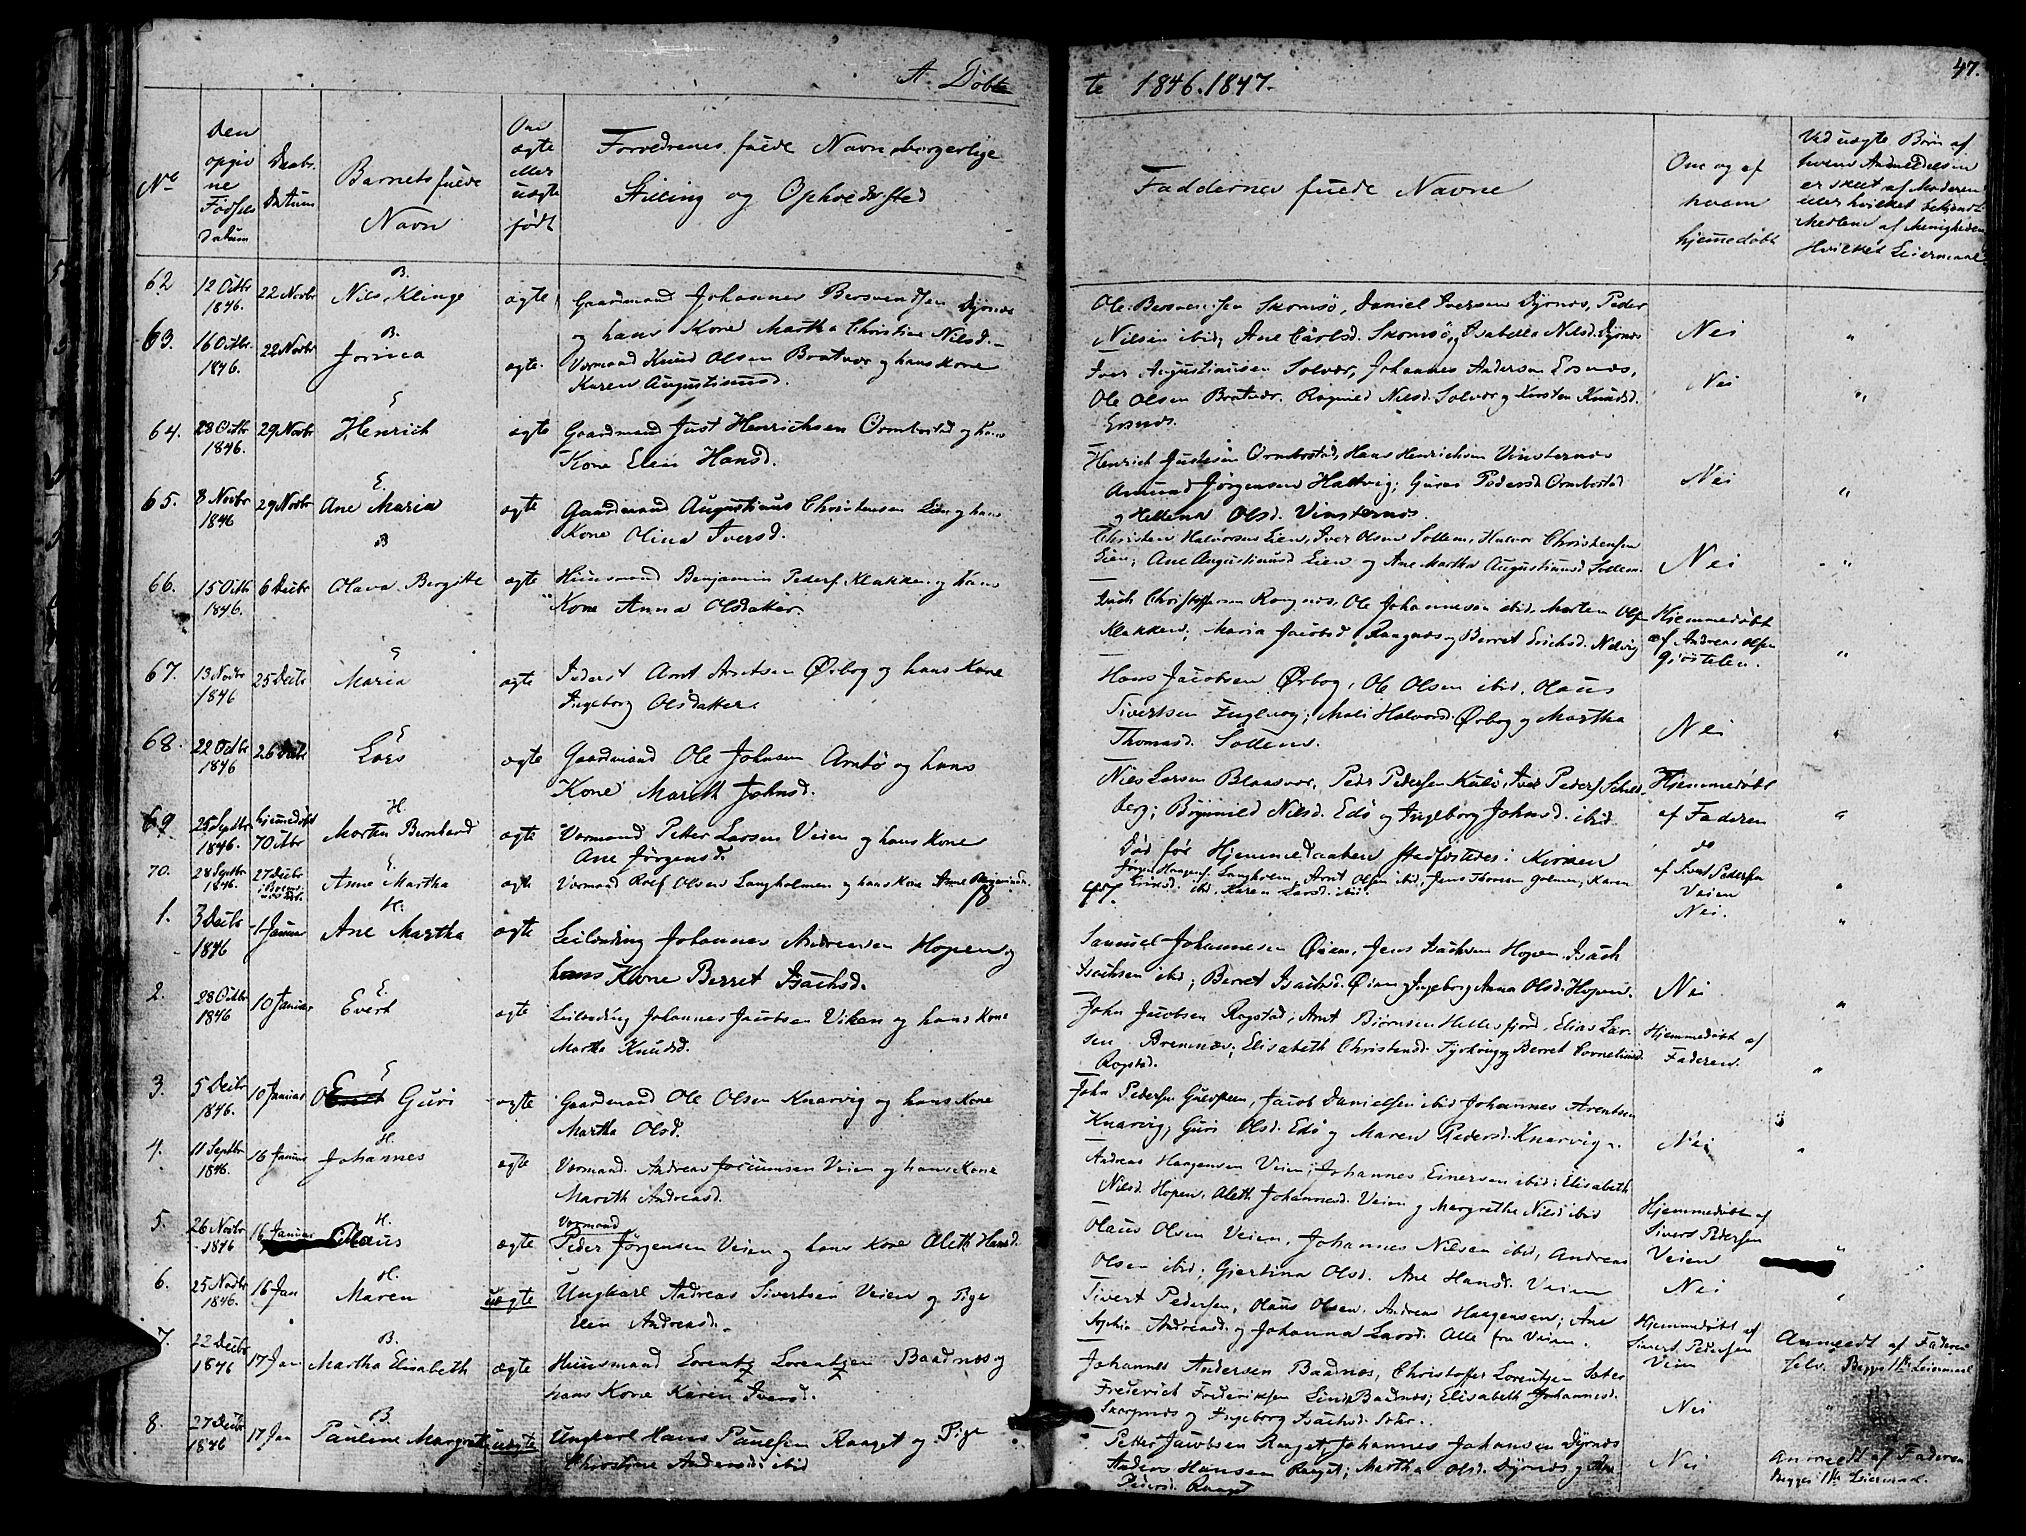 A. Døbte 1846.1847.
47.
No
Den opgivne Fødsels Datum
Daabs Datum
Barnets fulde Navn
Om ægte eller uægte født
Forældrenes fulde Navn, borgerlige Stilling og Opholdssted
Faddernes fulde Navne
Om og af hvem hjemmedøbt
Ved uægte Børn af hvem Anmeldelsen er skeet af Moderen eller hvilket bekjendt Medlem af Menigheden Hvilket Leiermaal
62 12 Octbr 1846. 22 Novbr B. Nils Klinge ægte Gaardmand Johannes Bersvendsen Dyrnæs
og hans Kone Martha Christine Nilsd.
Ole Bersvendsen Skomsø, Daniel Iversen Dyrnæs, Peder
Nilsen ibid, Ane Carlsd. Skomsø, Isabella Nilsd. Dyrnæs
Nei "
63. 16 Octbr. 1846. 22 Novbr B. Jorina ægte. Vormand Knud Olsen Bratvær og hans Kone
Karen Augustinusd.
Iver Augustinusen Solvær, Johannes Andersen Eosnæs,
Ole Olsen Bratvær. Ragnild Nilsd. Solvær og Kirsten Knudsd.
Eosnæs.
Nei "
64. 28 Octbr 1846. 29 Novbr E Henrich ægte Gaardmand Just Henrichsen Ormbostad og hans
Kone Elen Hansd.
Henrich Justesen Ormbostad, Hans Henrichsen Vinsternæs
Amund Jørgensen Haltvig; Guren Pedersd. Ormbostad
og Hellena Olsd. Vinsternæs.
Nei "
65. 8 Novbr 1846 29 Novbr E. Ane Maria ægte Gaardmand Augustinus Christensen Lien og hans
Kone Olina Iversd.
Christen Halvorsen Lien, Iver Olsen Sollem, Halvor Christensen
Lien; Ane Augustinusd Lien og Ane Martha Augustinusd Sollem.
Nei "
66. 15 Octb 1846. 6 Decbr B Olava Bergitte ægte Huusmand Benjamin Peders. Klakken og hans
Kone Anna Olsdatter.
Isach Christophersen Rangnæs, Ole Johannesen ibid. Morten Ols.
Klakken; Maria Jacobsd. Raagnæs og Berret Erichsd. Nelvig
Hjemmedøbt
af Andreas Olsen
Gjøstelen. "
67. 13 Novbr 1846 25 Decbr E Maria ægte Inderst Arnt Arntsen Ørbog og hans Kone
Ingeborg Olsdatter.
Hans Jacobsen Ørbog, Ole Olsen ibid, Olaus
Sivertsen Fuglvog; Mali Halvorsd. Ørbog og Martha
Thomasd. Sollem.
Nei "
68. 22 Octbr 1846 26 Decbr E Lars ægte Gaardmand Ole Johnsen Arntø og hans
Kone Marith Johnsd.
Nils Larsen Blaasvær, Peder Pedersen Kulø, Iver Peders. Schelberg; Brynnild Nilsd. Edø og Ingeborg Johnsd. ibid
Hjemmedøbt
af Faderen "
69 25 Septbr 1846. hjemmedøbt 7 Octbr H. Morten Bernhard ægte Vormand Petter Larsen Veien og hans Kone
Ane Jørgensd.
Død før Hjemmedaaben stadfæstedes i Kirken
do
af Sivert Pedersen
Veien "
70. 28 Septbr 1846. 27 Decbr E. Anne Martha ægte Vormand Rolf Olsen Langholmen og hans Kone Anne Benjaminsd.
Jørgen Haagens. Langholm, Arnt Olsen ibid, Jens Thoresen Holmen, Karen
Ericsd. ibid, Karen Larsd. ibid.
Nei. "
18 47.
1. 3 Decbr 1846 1 Januar H. Ane Martha ægte Leilænding Johannes Andreassen Hopen og
hans Kone Berret Isachsd.
Samuel Johannesen Øien, Jens Isachsen Hopen, Isach
Isachsen ibid; Berret Isachsd. Øien, Ingeborg Anna Olsd. Hopen.
Nei "
2. 28 Octbr 1846 10 Januar E. Evert ægte Leilænding Johannes Jacobsen Viken og hans Kone
Martha Knudsd.
John Jacobsen Rogstad, Arnt Biørnsen Hellesfjord, Elias Larsen Bremnæs; Elisabeth Christensd. Tyrhaug og Berret Corneliusd.
Rogstad.
Hjemmedøbt af
Faderen. "
3. 5 Decbr 1846. 10 Januar E Guri ægte Gaardmand Ole Olsen Knarvig og hans Kone
Martha Olsd.
John Pedersen Gulvsteen, Jacob Danielsen ibid Johannes Arentsen
Knarvig; Guri Olsd. Edø og Maren Pedersd. Knarvig.
Nei "
4. 11 Septbr 1846. 16 Januar H. Johannes ægte Vormand. Andreas Jocumsen Veien og hans Kone
Marith Andreasd.
Andreas Haagensen Veien; Johannes Einersen ibid; Elisabeth
Nilsd. Hopen, Aleth Johannesd. Veien og Margrethe Nilsd ibid
Hjemmedøbt af
Sivert Pedersen
Veien "
5. 26 Novbr 1846 16 Januar H. Olaus ægte Vormand
Peder Jørgensen Veien og hans Kone Aleth Hansd.
Olaus Olsen Veien, Johannes Nilsen ibid, Andreas
Olsen ibid; Gjertina Olsd. Ane Hansd. Veien
Nei
6. 25 Novbr 1846. 16 Jan H. Maren uægte Ungkarl Andreas Sivertsen Veien og Pige
Elen Andreasd.
Sivert Pedersen, Olaus Olsen, Andreas Haagensen; Ane
Sophia Andreasd. og Johanna Larsd. Alle fra Veien.
Hjemmedøbt af
Sivert Pedersen
Veien
Anmeldt af Faderen
selv. Begges 1ste Leiermaal
7. 22 Decbr 1846 17 Jan B. Martha Elisabeth ægte Huusmand Lorentz Lorentzen Baadnæs og
hans Kone Karen Iversd.
Johannes Andersen Baadnæs, Christoffer Lorentzen Sæter
Frederich Frederiksen Lund Baadnæs; Elisabeth Johannesd.
Skarpnæs og Ingeborg Isachsd. Sæter.
Nei "
8. 27 Decbr 1846 17 Jan B. Pauline Margreth uægte Ungkarl Hans Paulsen Raaget og Pige
Christine Andersd. ibid
Petter Jacobsen Raaget, Johannes Johansen Dyrnæs
Anders Hansen Raaget; Martha Olsd. Dyrnæs og Ane
Pedersd. Raaget
Nei
Anmeldt af Faderen
Begges 1ste Leiermaal.